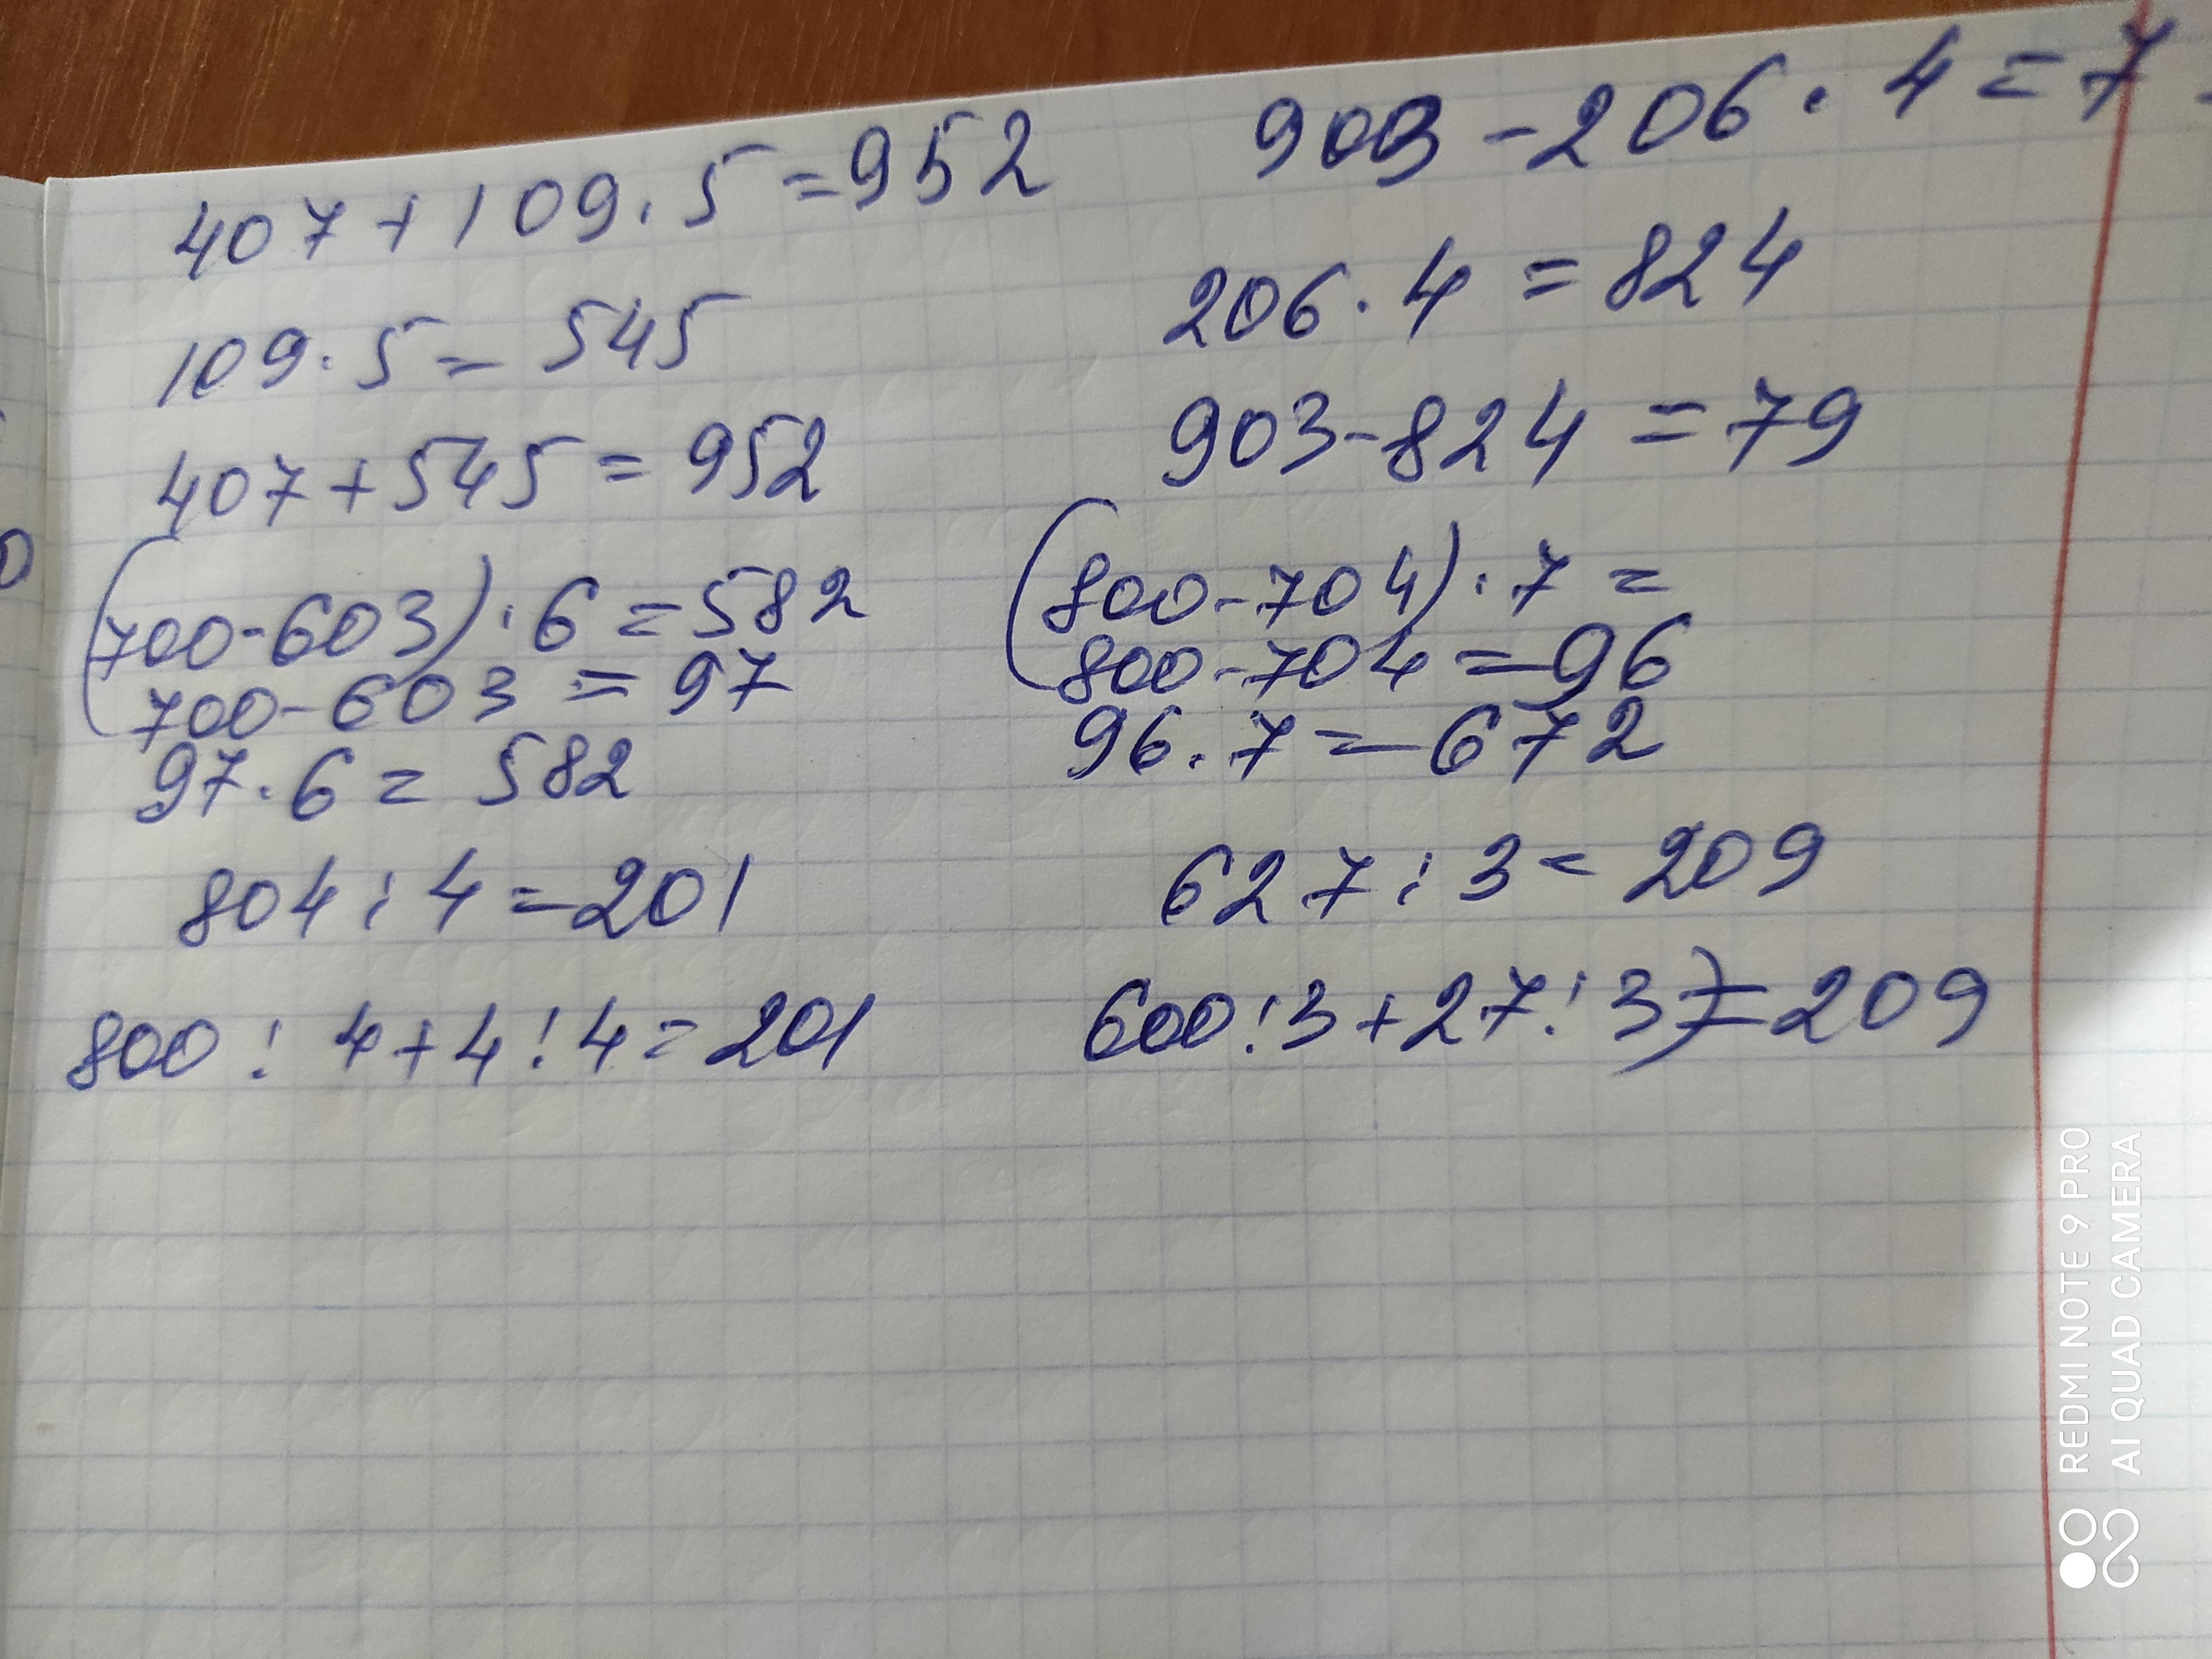 407+109·5=952
109·5=545
407+545=952
(700-603)·6=582
700-603=97
97·6=582
804:4=201
800:4+4:4=201
903-206·4=7
206·4=824
903-824=79
(800-704)·7=
800-704=96
96·7=672
627:3=209
600:3+27:3)=209
REDMI NOTE 9 PRO
AI QUAD CAMERA